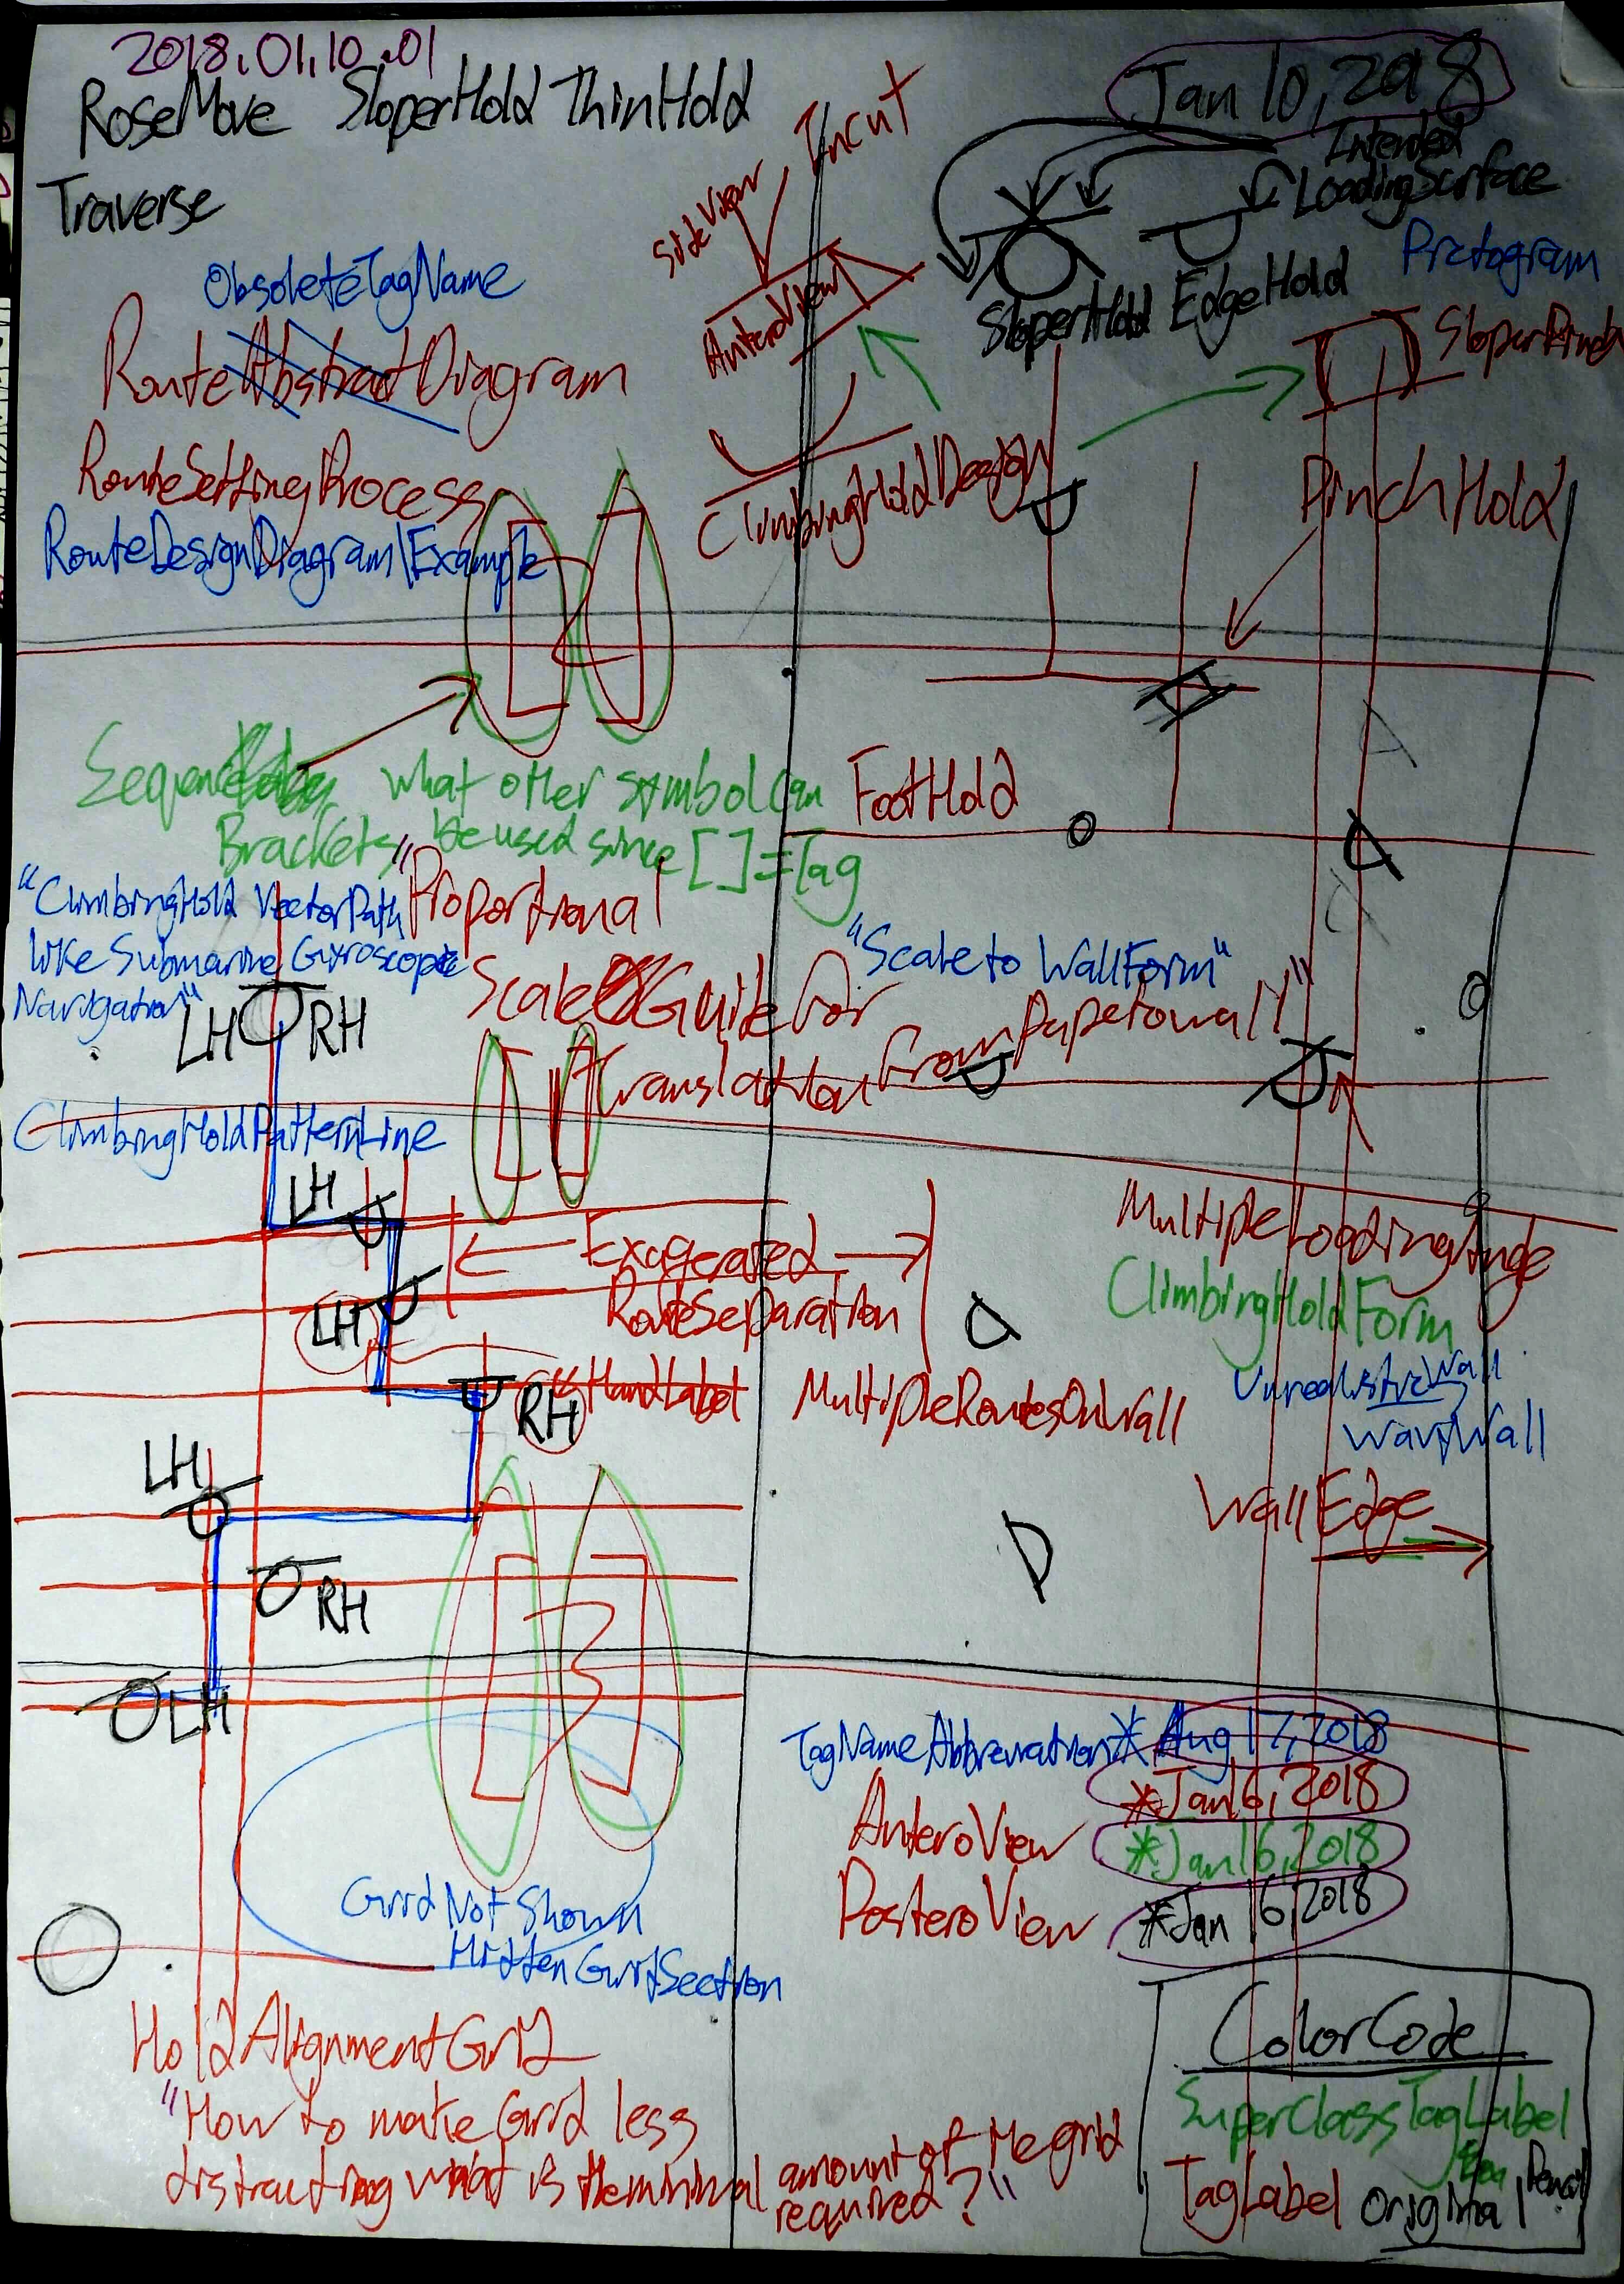 2018.01.10.01
Jan 10, 2018
RoseMove SloperHold ThinHold
Traverse
Incut
SideView
AnteroView
Intended
LoadingSurface
Pictogram
SloperHold EdgeHold
SloperPinch
ObsoleteTagName
RouteAbstractDiagram
RouteSettingProcess
RouteDesignDiagram\Example
ClimbingHoldDesign
PinchHold
[1]
[2]
[3]
Sequence
Brackets
What other symbol can
be used since [ ] = Tag
FootHold
"ClimbingHold VectorPath
like Submarine Gyroscope
Navigation"
"Proportional
Scale Guide for
Translation from paper to wall"
"Scale to WallForm"
LH RH
ClimbingHoldPatternLine
LH
Exagerated
RouteSeparation
LH
HandLabel
RH
MultipleRoutesOnWall
MultipleLoadingAngle
ClimbingHoldForm
UnrealisticWall
WavyWall
WallEdge
LH
RH
LH
TagNameAbbreviation * Aug 17, 2018
AnteroView
PosteroView
*Jan 16, 2018
*Jan 16, 2018
*Jan 16, 2018
Grid Not Shown
HiddenGridSection
HoldAlignmentGrid
"How to make Grid less
distracting what is the minimal amount of the grid
required?"
ColorCode
SuperClassTagLabel
TagLabel Original Pencil